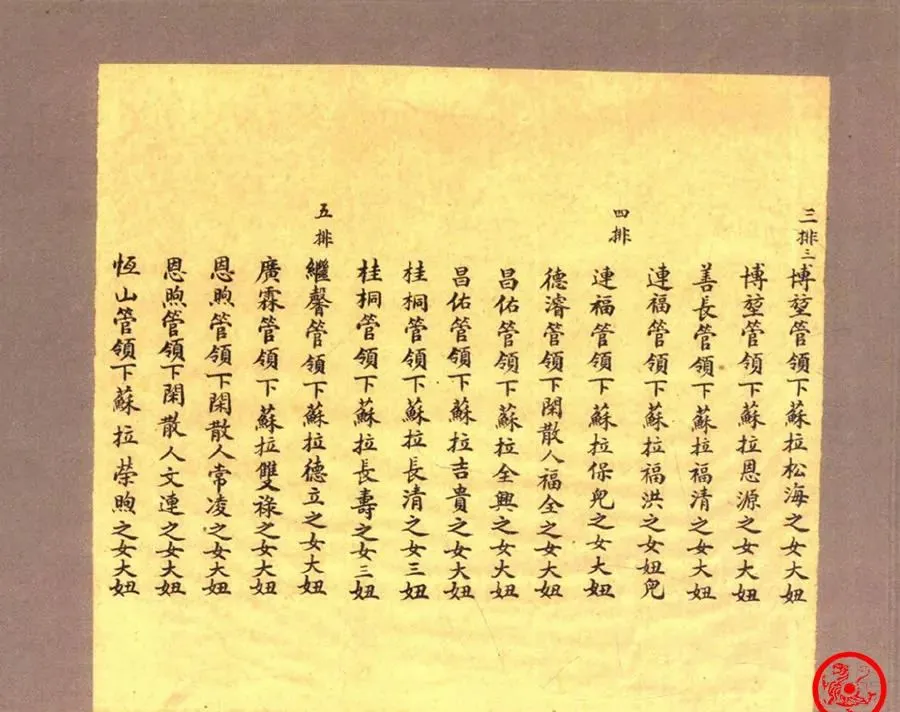 三排三
博堃管領下蘇拉松海之女大妞
博堃管領下蘇拉恩源之女大妞
善長管領下蘇拉福清之女大妞
連福管領下蘇拉福洪之女妞兒
四排
連福管領下蘇拉保兒之女大妞
德濬管領下閑散人福全之女大妞
昌佑管領下蘇拉全興之女大妞
昌佑管領下蘇拉吉貴之女大妞
桂桐管領下蘇拉長清之女三妞
桂桐管領下蘇拉長壽之女三妞
五排
繼馨管領下蘇拉德立之女大妞
廣霖管領下蘇拉雙祿之女大妞
恩煦管領下閑散人常凌之女大妞
恩煦管領下閑散人文連之女大妞
恆山管領下蘇拉榮煦之女大妞